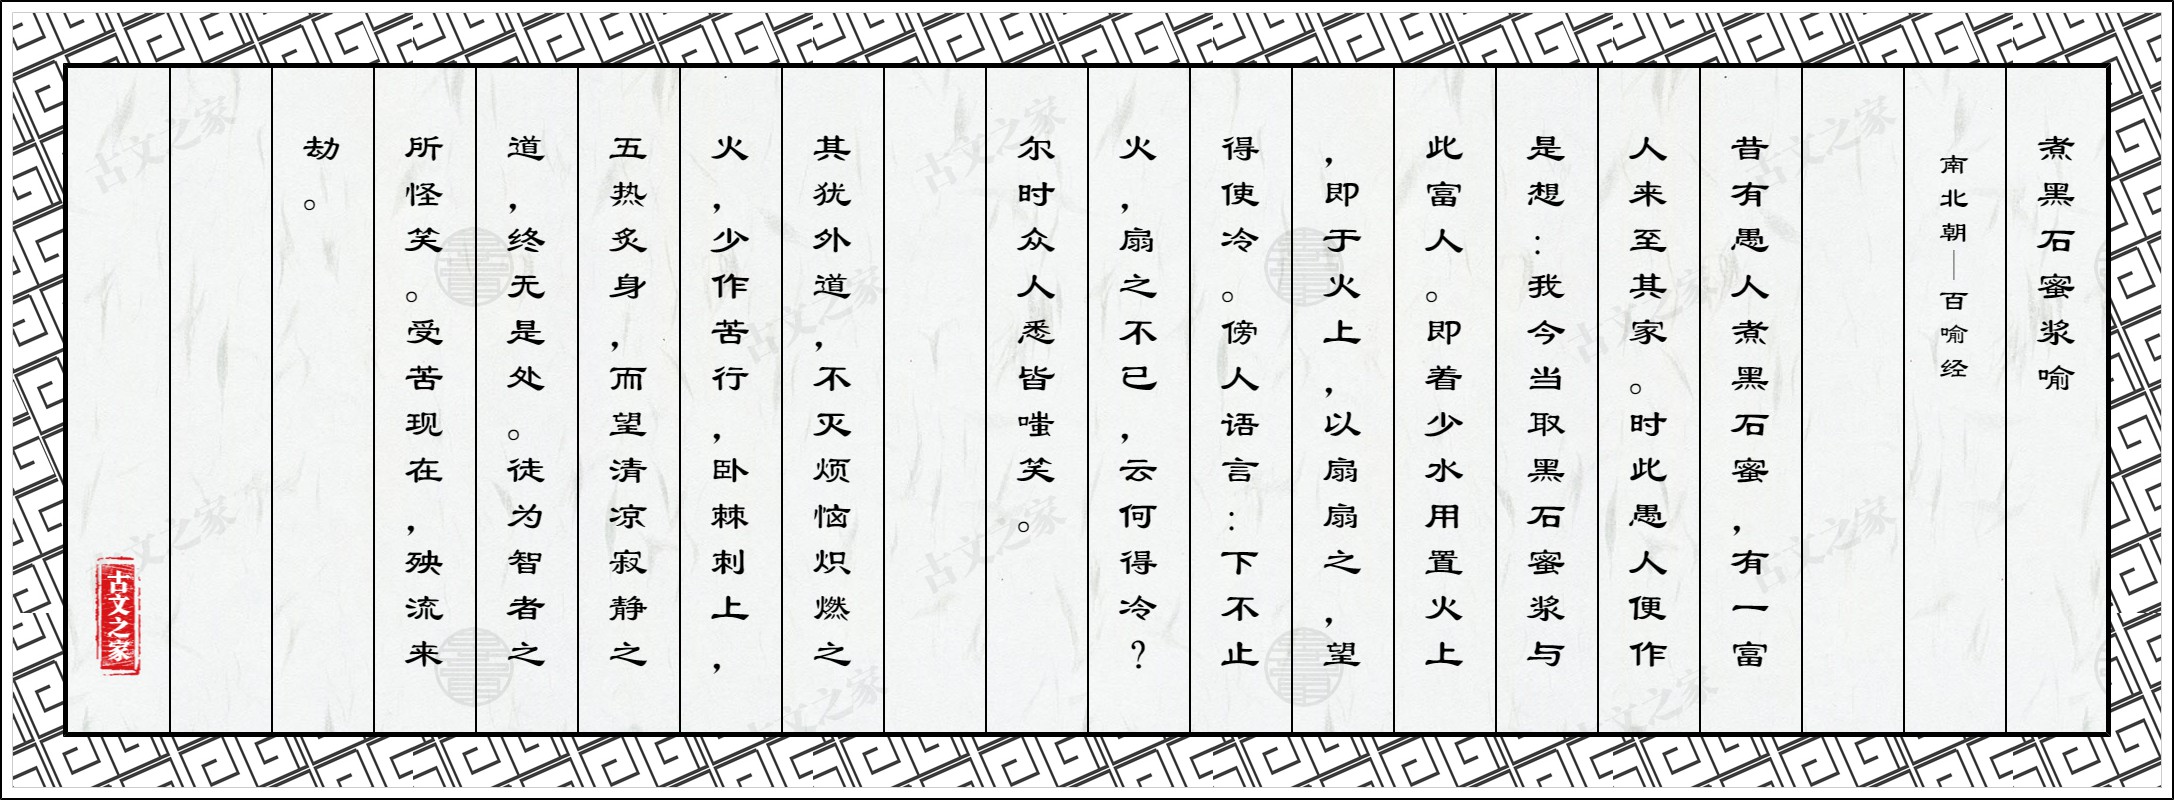 煮黑石蜜浆喻
南北朝—百喻经
昔有愚人煮黑石蜜，有一富
人来至其家。时此愚人便作
是想：我今当取黑石蜜浆与
此富人。即着少水用置火上
，即于火上，以扇扇之，望
得使冷。傍人语言：下不止
火，扇之不已，云何得冷？
尔时众人悉皆嗤笑。
其犹外道，不灭烦恼炽燃之
火，少作苦行，卧棘刺上，
五热炙身，而望清凉寂静之
道，终无是处。徒为智者之
所怪笑。受苦现在，殃流来
劫。
古文之家